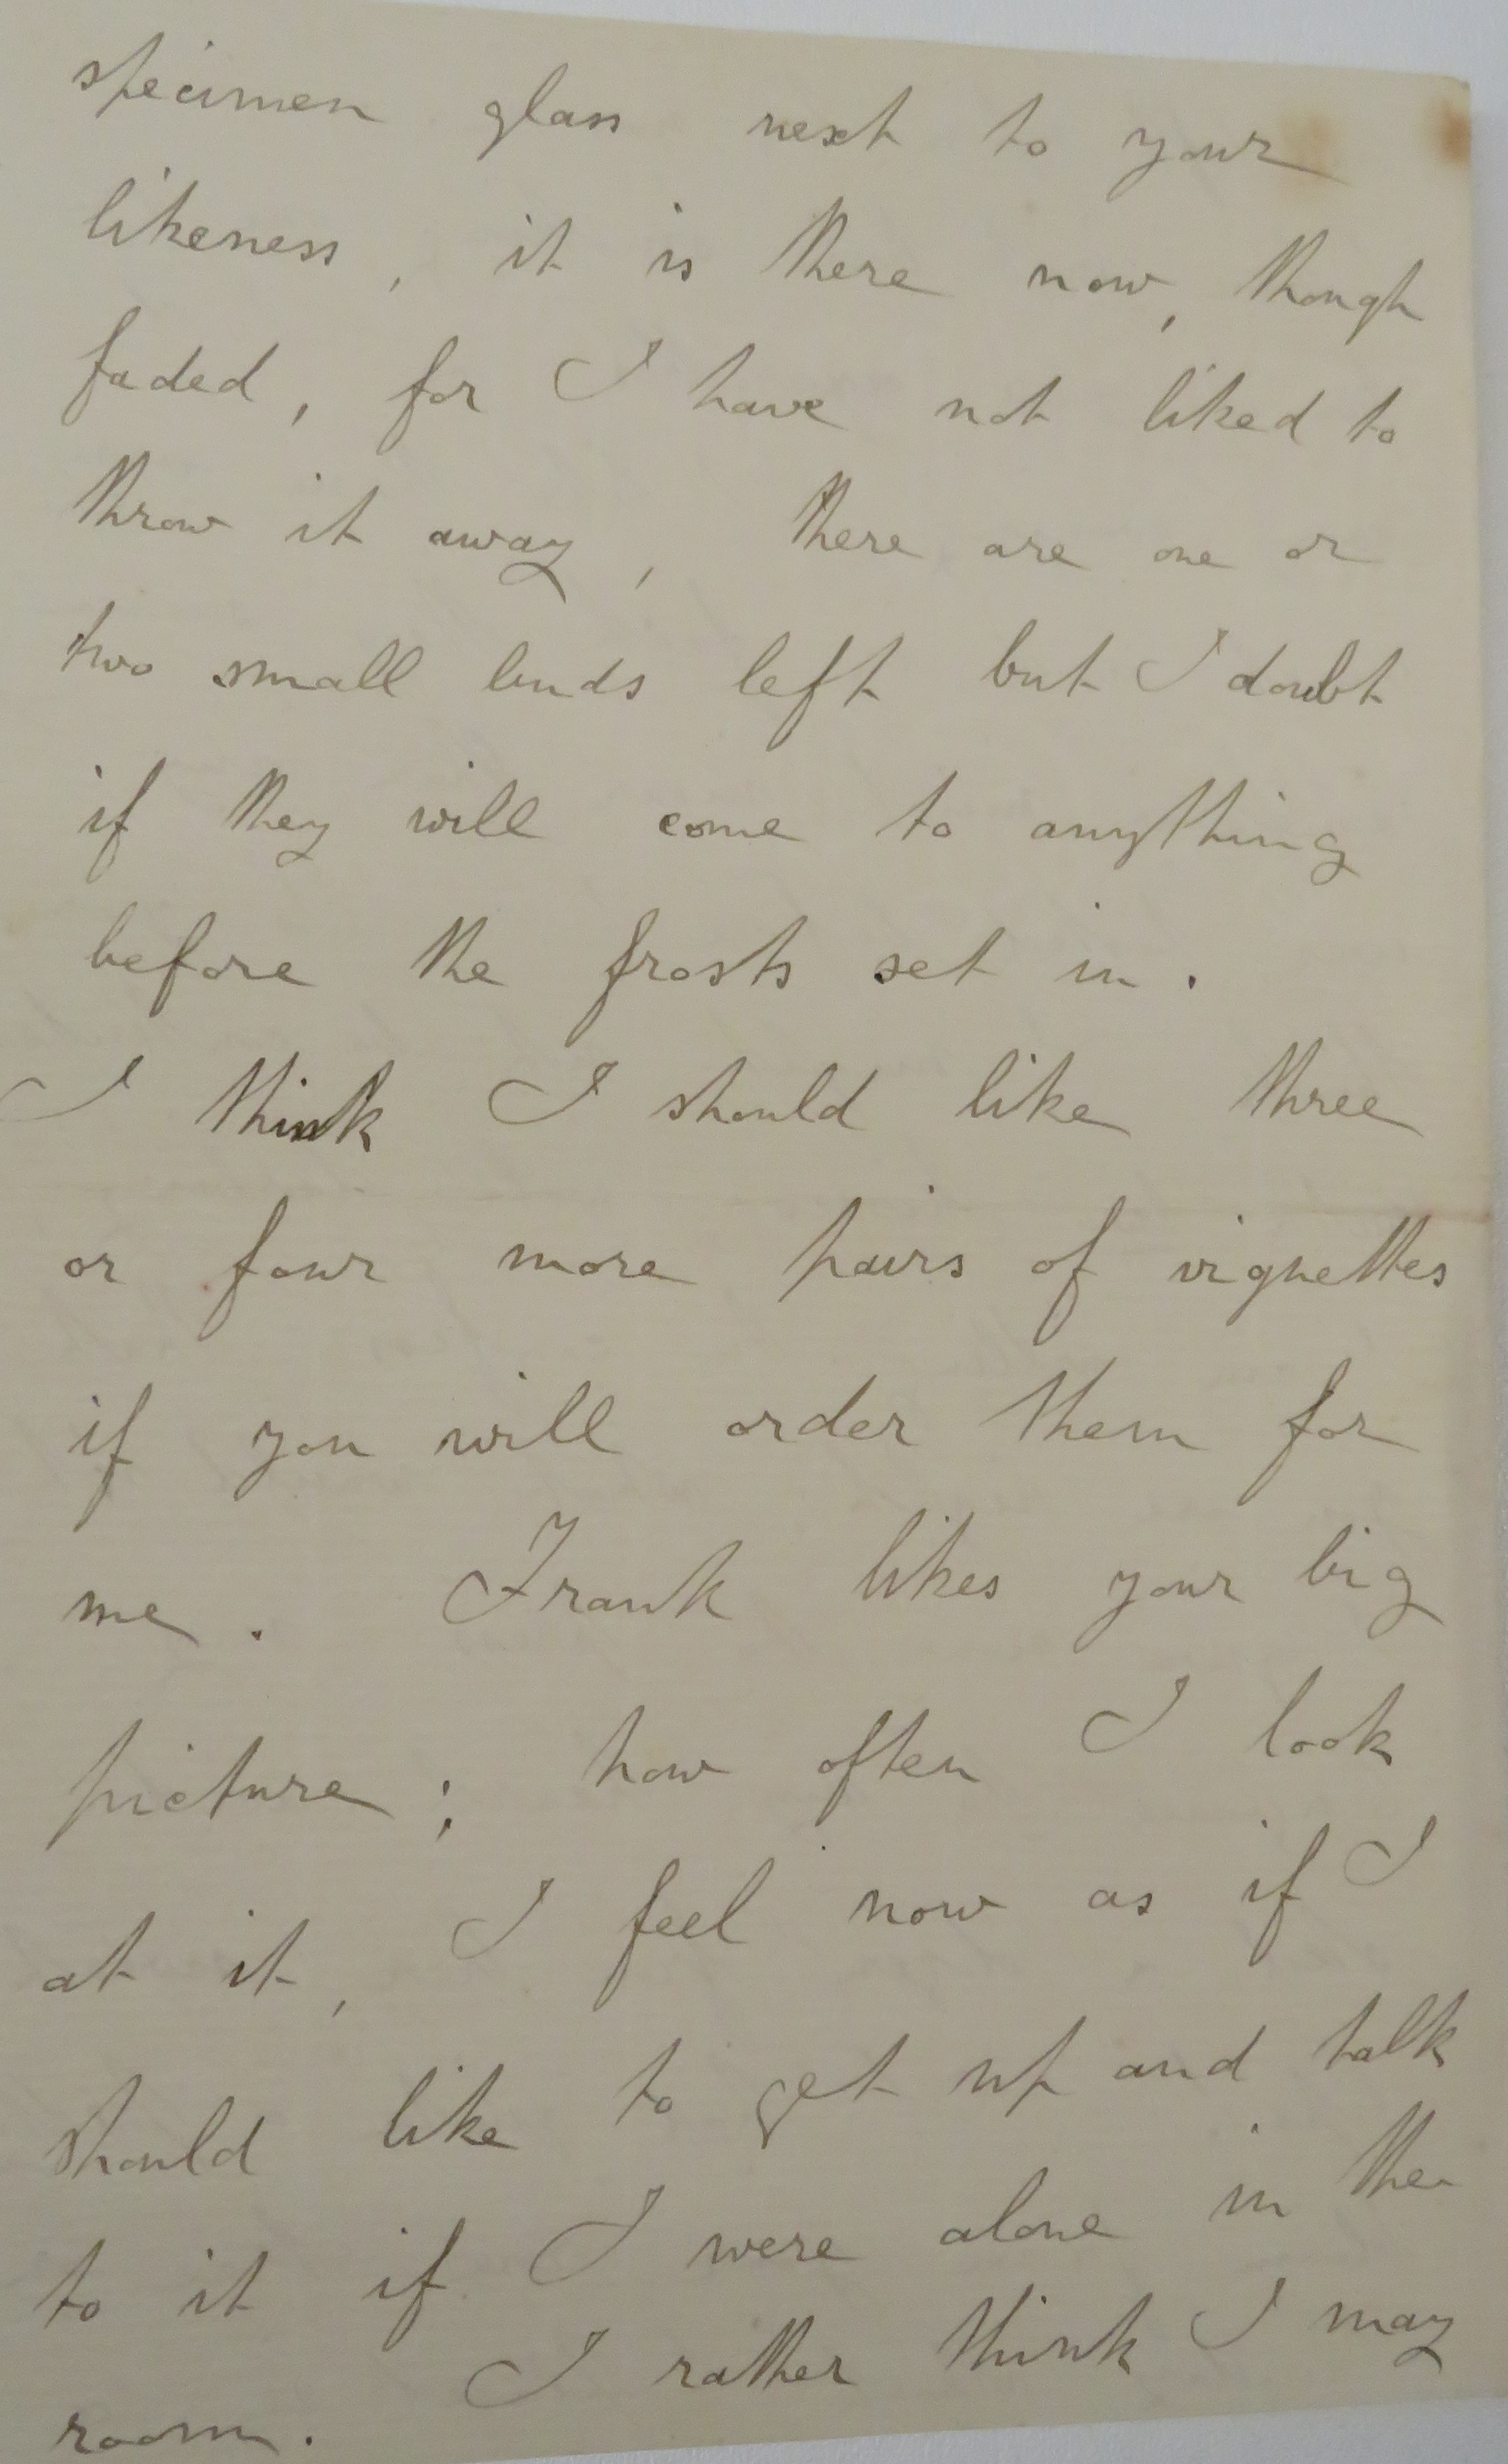 specimen glass next to your
likeness, it is there now, though
faded, for I have not liked to
throw it away, there are one or
two small buds left but I doubt
if they will come to anything
before the frosts set in.
I think I should like three
or four more pairs of vignettes
if you will order them for
me. Frank likes your big
picture; how often I look
at it, I feel now as if I
should like to get up and talk
to it if I were alone in the
room. I rather think I may